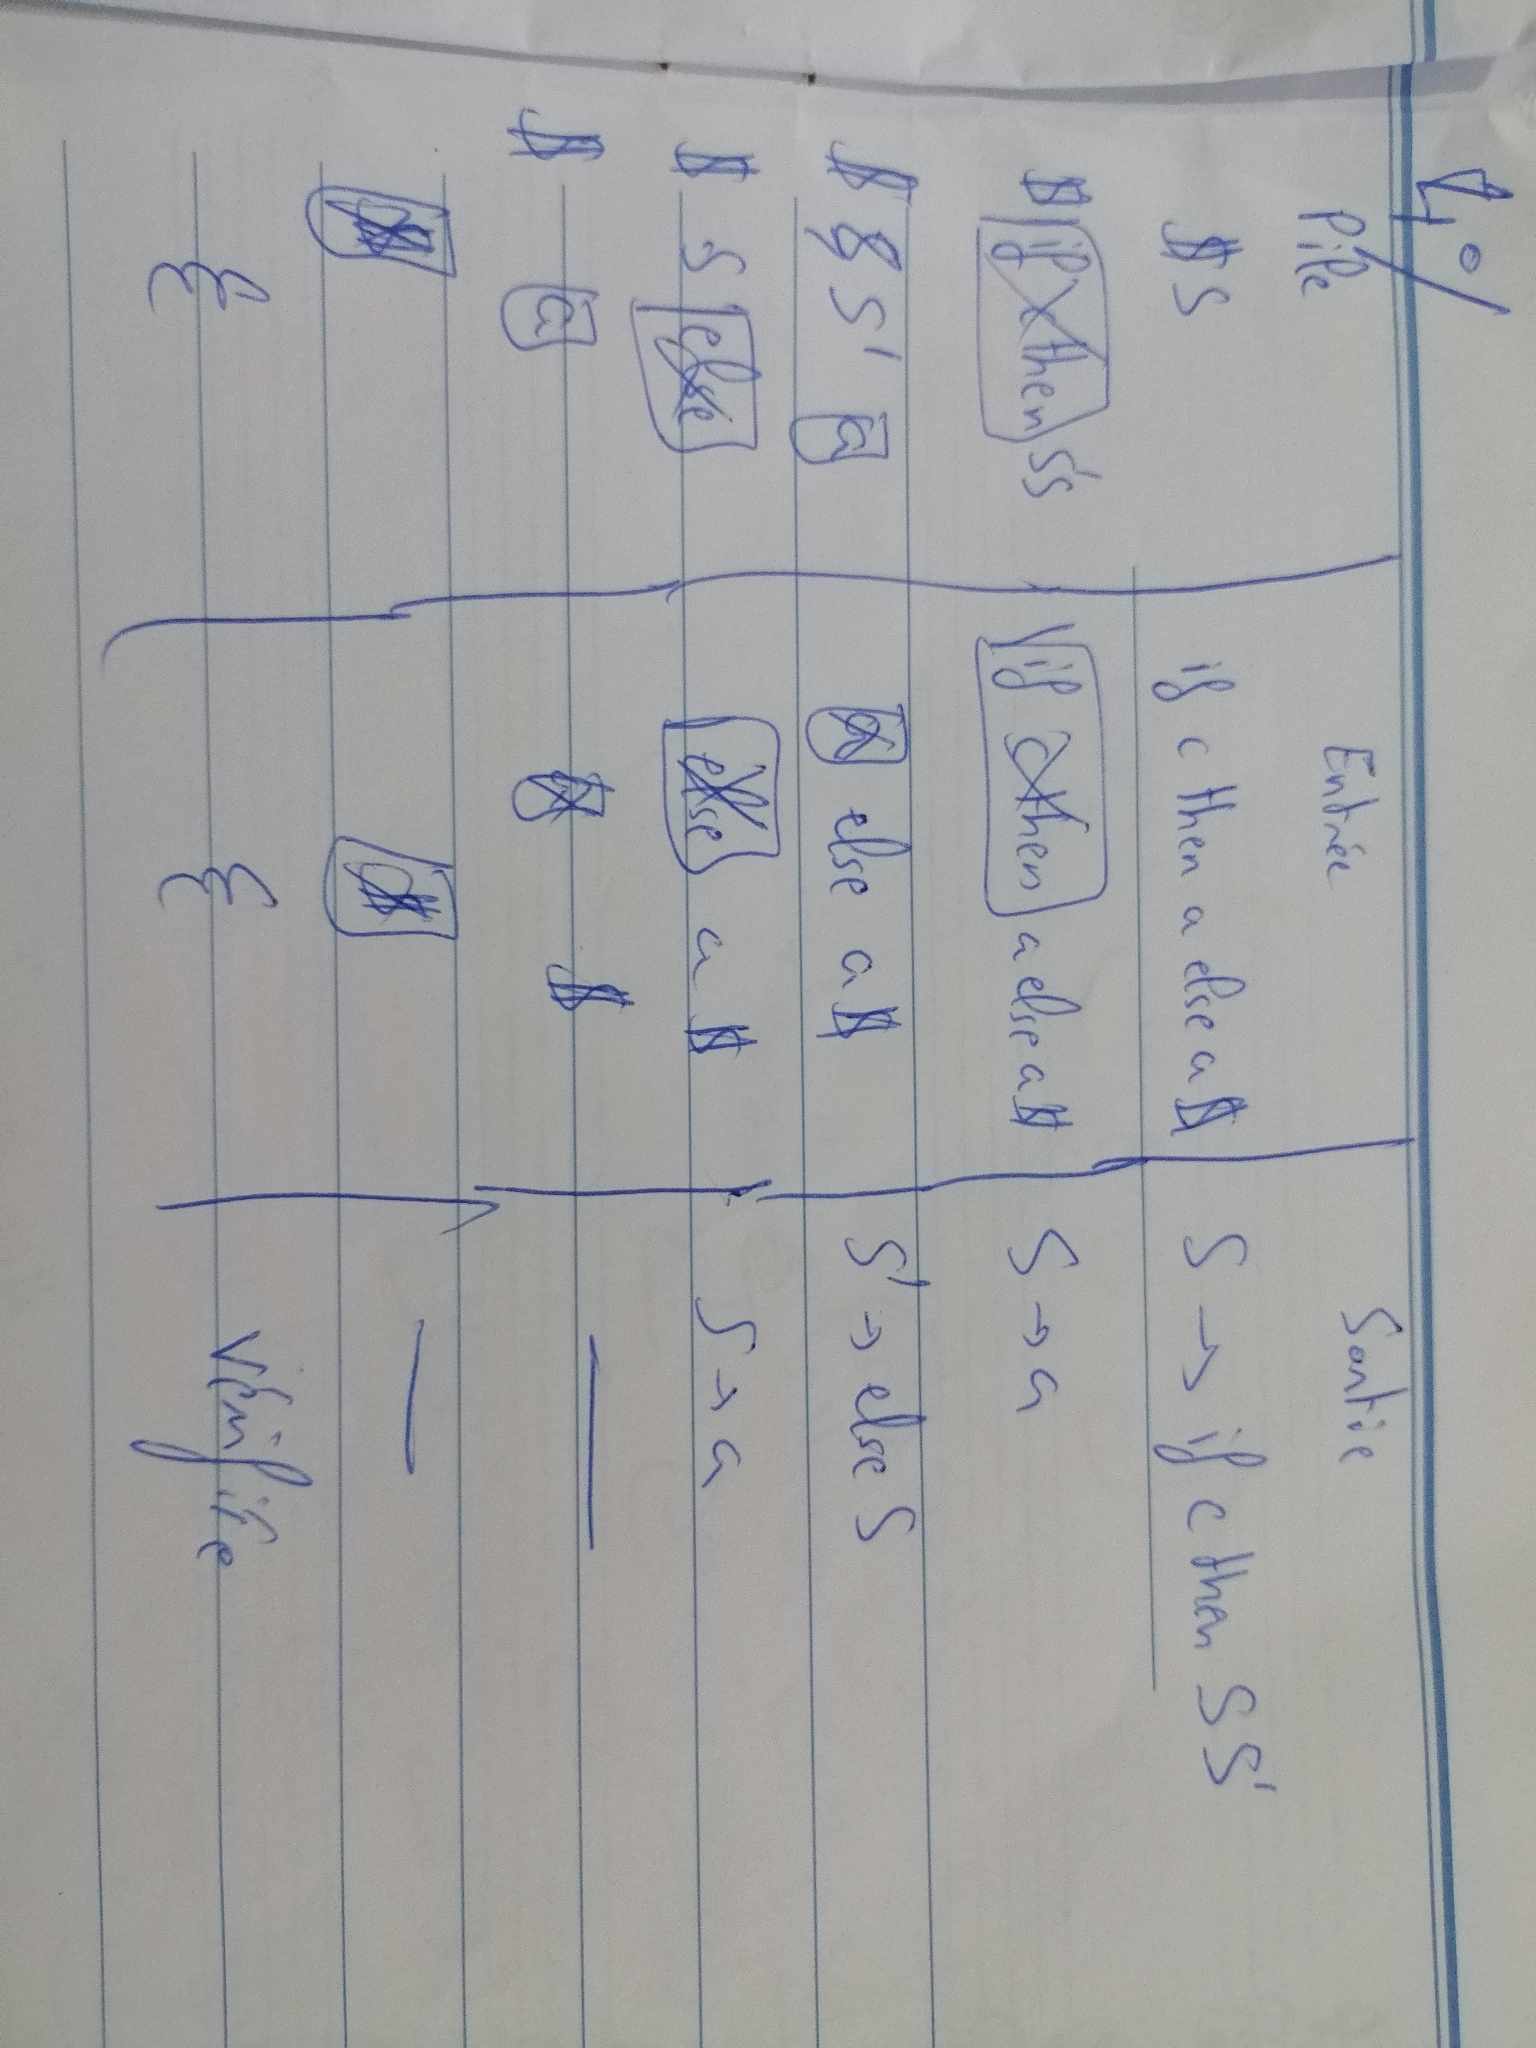 4°/
Pile Entrée Sortie
$ S if c then a else a $ S → if c then S S'
$ if c then S'S if c then a else a $ S → a
$ S' a a else a $ S' → else S
$ S else else a $ S → a
$ a a $ —
$ $ —
ε ε Vérifiée